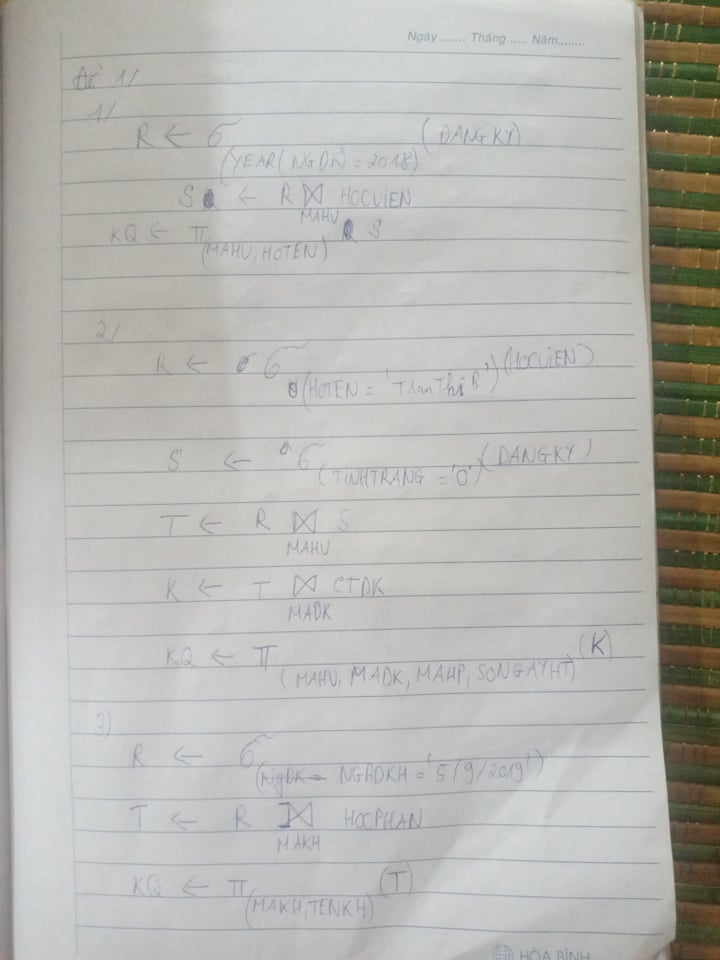 Ngày ....... Tháng ..... Năm........
Đề 1/
1/
R ← σ (YEAR(NGDK) = 2018) (DANGKY)
S ← R ⋈ HOCVIEN
MAHV
KQ ← π (MAHV, HOTEN) S
2/
R ← σ (HOTEN = 'Tran Thi B') (HOCVIEN)
S ← σ (TINHTRANG = '0') (DANGKY)
T ← R ⋈ S
MAHV
K ← T ⋈ CTDK
MADK
KQ ← π (MAHV, MADK, MAHP, SONGAYHT) (K)
3)
R ← σ (NgDK = NGBDKH = '5/9/2019')
T ← R ⋈ HOCPHAN
MAKH
KQ ← π (MAKH, TENKH) (T)
HÒA BÌNH